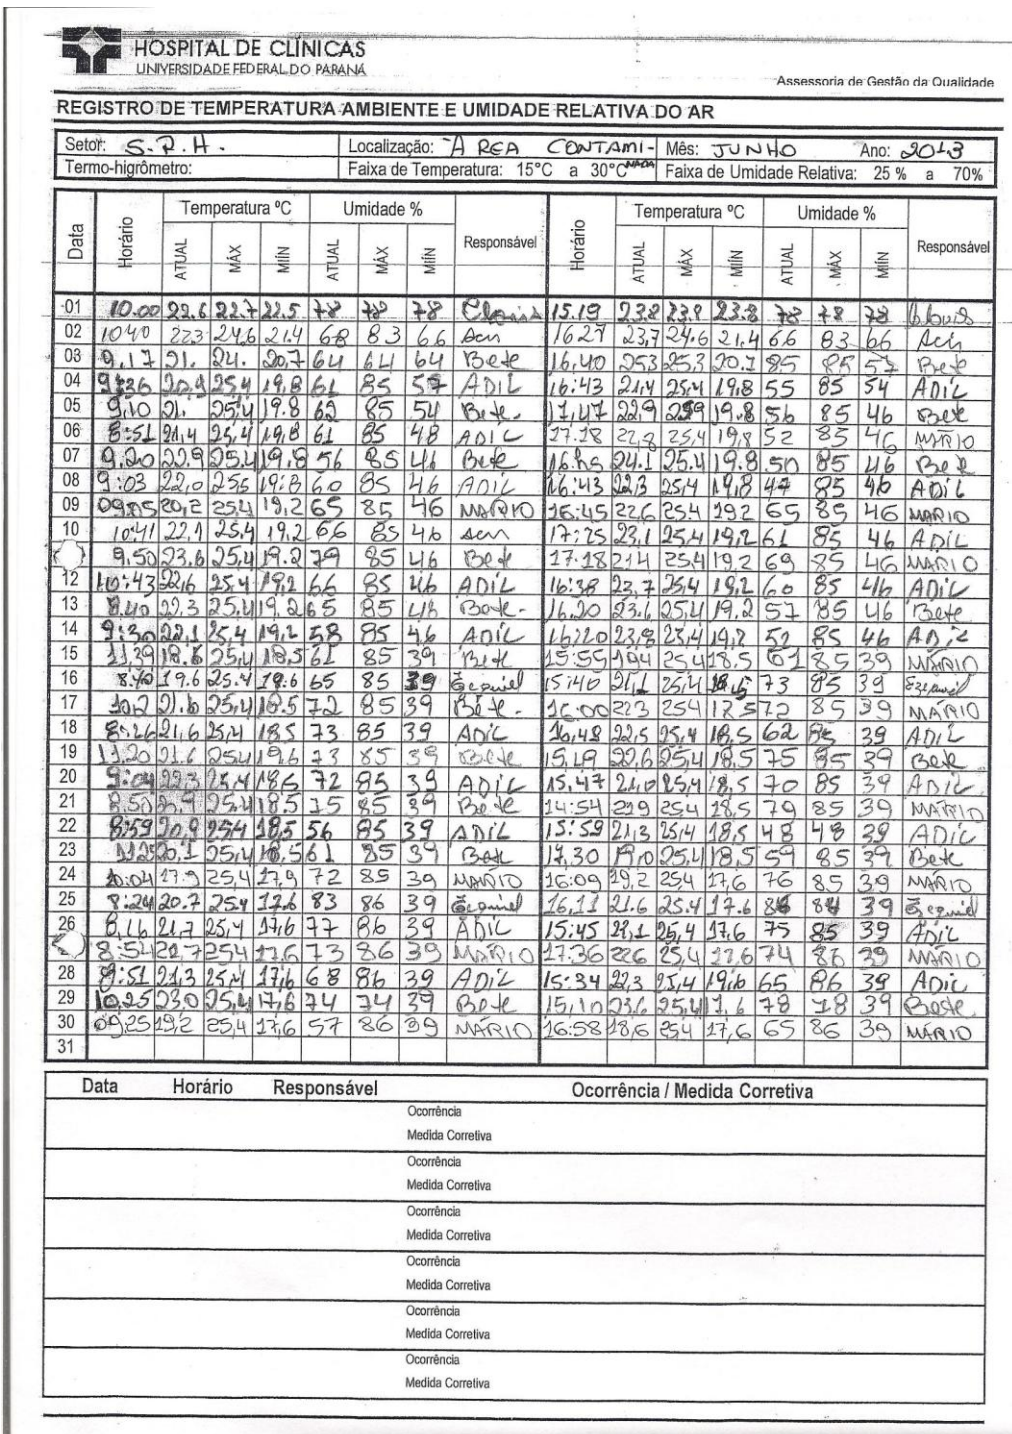 HOSPITAL DE CLÍNICAS
UNIVERSIDADE FEDERAL DO PARANÁ
Assessoria de Gestão da Qualidade
REGISTRO DE TEMPERATURA AMBIENTE E UMIDADE RELATIVA DO AR
Setor: S.P.H. Localização: ÁREA CONTAMI- Mês: JUNHO Ano: 2013
Termo-higrômetro: Faixa de Temperatura: 15°C a 30°C NADA Faixa de Umidade Relativa: 25 % a 70%
Data Horário Temperatura ºC Umidade % Responsável Horário Temperatura ºC Umidade % Responsável
ATUAL MÁX MÍN ATUAL MÁX MÍN ATUAL MÁX MÍN ATUAL MÁX MÍN
01 10.00 22.6 22.7 22.5 78 78 78 15.19 23.8 23.8 23.8 78 78 78
02 1040 223 24,6 21.4 68 83 66 16:27 23,7 24.6 21,4 66 83 66
03 9.17 21. 24. 20,7 64 64 64 Bete 16,40 253 25,3 20.7 85 85 57 Bete
04 9:36 20,9 25,4 19,8 61 85 57 ADIL 16:43 21,4 25,4 19,8 55 85 54 ADIL
05 9,10 21. 25,4 19.8 62 85 54 Bete. 17,47 22,9 259 19.8 56 85 46 Bete
06 8:51 21,4 25,4 19,8 61 85 48 ADIL 17:18 22,8 25,4 19,8 52 85 46 MÁRIO
07 9.20 22.9 25.4 19.8 56 85 46 Bete 16.hs 24.1 25.4 19.8 50 85 46 Bete
08 9:03 22,0 255 19:8 60 85 46 ADIL 16:43 22,3 25,4 19,8 47 85 46 ADIL
09 20,2 25,4 19,2 65 85 46 MARIO 16:45 22,6 25,4 192 65 85 46 MARIO
10 10:41 22,1 25,4 19,2 66 85 46 17:25 23,1 25,4 19,2 61 85 46 ADIL
9.50 23.6 25,4 19.2 79 85 46 Bete 17:18 21,4 25,4 19,2 69 85 46 MARIO
12 10:43 22,6 25,4 19,2 66 85 46 ADIL 16:38 23,7 25,4 19,2 60 85 46 ADIL
13 8.40 22.3 25,4 19,2 65 85 46 Bete. 16.20 23.6 25,4 19.2 57 85 46 Bete
14 9:30 22,1 25,4 19,2 58 85 46 ADIL 16:20 23,8 25,4 19,2 52 85 46 ADIL
15 11.39 18.6 25,4 18,5 61 85 39 Bete 15:55 19,4 25,4 18,5 61 85 39 MÁRIO
16 8:40 19.6 25.4 19.6 65 85 39 Ezequiel 15:40 21,1 25,4 18,5 73 85 39 Ezequiel
17 21.6 25,4 18.5 72 85 39 Bete. 16:00 223 254 18,5 72 85 39 MARIO
18 8:26 21,6 25,4 18,5 73 85 39 ADIL 16,48 22,5 25,4 18,5 62 85 39 ADIL
19 11.20 21.6 25,4 19,6 73 85 39 Bete 15,19 22,6 25,4 18,5 75 85 39 Bete
20 9:04 22,3 25,4 18,5 72 85 39 ADIL 15,47 21,0 25,4 18,5 70 85 39 ADIL
21 8.50 25,4 18,5 75 85 39 Bete 14:54 219 254 18,5 79 85 39 MÁRIO
22 8:59 20,9 25,4 18,5 56 85 39 ADIL 15:59 21,3 25,4 18,5 48 48 39 ADIL
23 20.1 25,4 18,5 61 85 39 Bete 17,30 19,0 25,4 18,5 59 85 39 Bete
24 10:04 17.9 25,4 17,9 72 85 39 MARIO 16:09 19,2 25,4 17,6 76 85 39 MARIO
25 8:24 20.7 25,4 17.6 83 86 39 Ezequiel 16,11 21.6 25.4 17.6 86 39 Ezequiel
26 8,16 21,7 25,4 17,6 77 86 39 ADIL 15:45 22,1 25,4 17,6 75 85 39 ADIL
8:54 21,7 25,4 17.6 73 86 39 MARIO 17:36 226 25,4 17,6 74 86 39 MARIO
28 9:51 21,3 25,4 17,6 68 86 39 ADIL 15:34 22,3 25,4 19,6 65 86 39 ADIL
29 10.25 23.0 25,4 17,6 74 74 39 Bete 15,10 23.6 25,4 17,6 78 78 39 Bete
30 09,25 19,2 25,4 17,6 57 86 39 MÁRIO 16:58 18,6 25,4 17,6 65 86 39 MÁRIO
31
Data Horário Responsável Ocorrência / Medida Corretiva
Ocorrência
Medida Corretiva
Ocorrência
Medida Corretiva
Ocorrência
Medida Corretiva
Ocorrência
Medida Corretiva
Ocorrência
Medida Corretiva
Ocorrência
Medida Corretiva